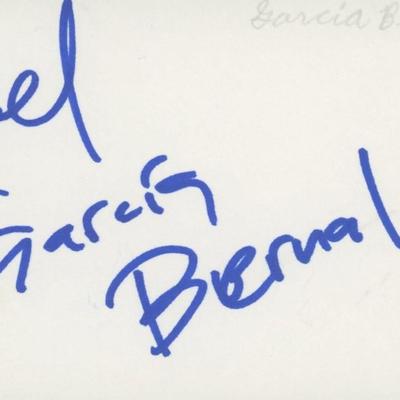 García B
el
García
Bernal